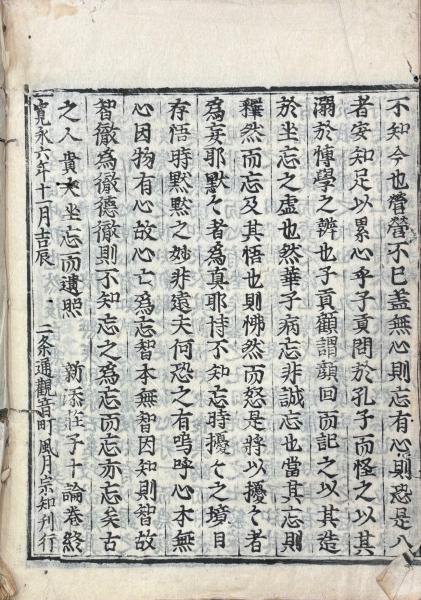 不知今也營營不已盖無心則忘有心則恐是八
者安知足以累心乎子貢問於孔子而怪之以其
溺於愽學之辨也子貢顧謂顔回而記之以其造
於坐忘之虚也然華子病忘非誠忘也當其忘則
釋然而忘及其悟也則怫然而怒是將以擾〻者
為妄耶默〻者為真耶恃不知忘時擾〻之境目
存悟時黙黙之妙非遠夫何恐之有嗚呼心本無
心因物有心故心亡為忘智本無智因知則智故
智徹為徹德徹則不知忘之為忘而忘亦忘矣古
之人貴夫坐忘而遺照　新添莊子十論卷終
寬永六年十一月吉辰　二条通觀音町風月宗知刊行